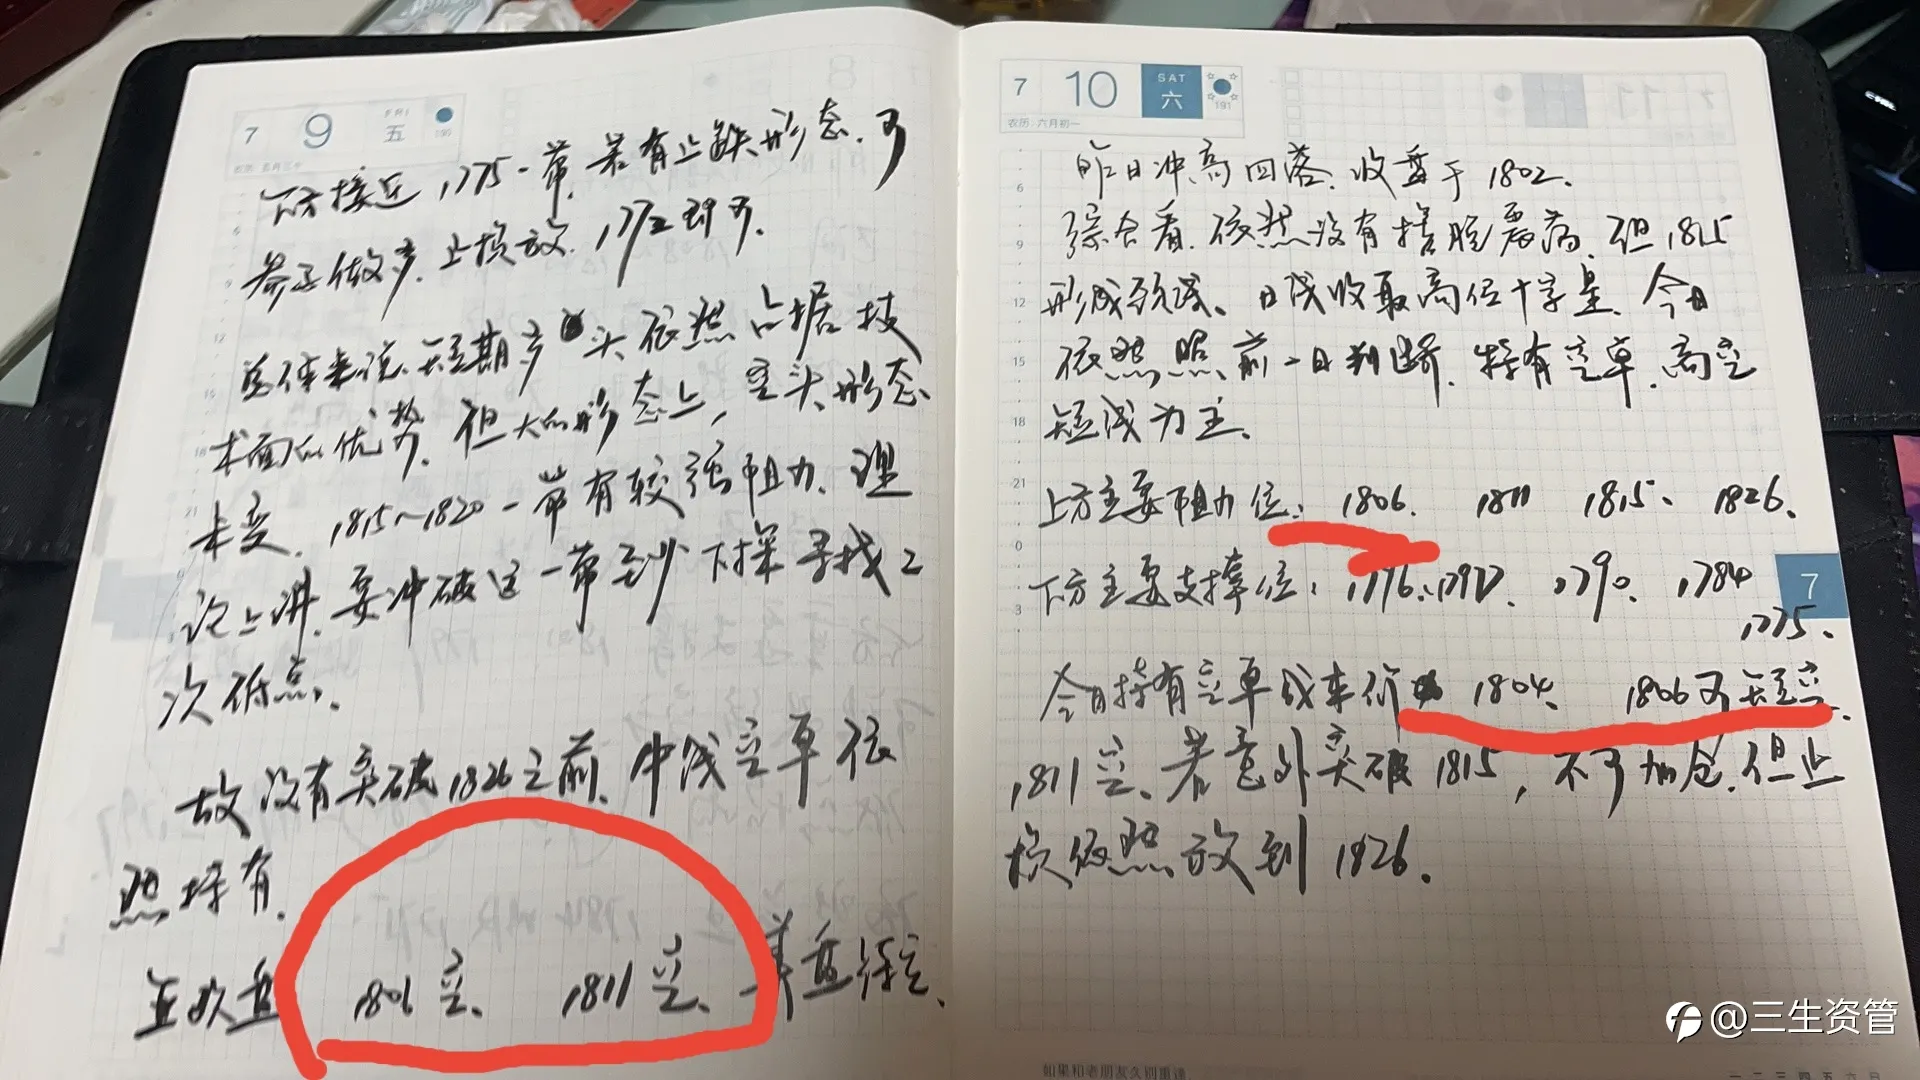 7 9 五
190
下方接近1775一带,若有止跌形态,可
参与做多,止损放1772即可.
总体来说,短期多头依然占据技
术面的优势,但大的形态上,空头形态
未变,1815~1820一带有较强阻力,理
论上讲,要冲破这一带至少下探寻找2
次低点.
故没有突破1826之前,中线空单依
照持有.
亚欧盘 1806空、1811空、美盘待定.
7 10 SAT 六
191
农历:六月初一
昨日冲高回落.收盘于1802.
综合看,依然没有摆脱震荡,但1815
形成颈线、日线收取高位十字星.今日
依然照前一日判断,持有空单,高空
短线为主.
上方主要阻力位:1806. 1811 1815、1826、
下方主要支撑位:1796、1792、1790、1784
1775、
今日持有空单成本价1804、1806可短空.
1811空、若意外突破1815,不可加仓,但止
损依照放到1826.
6
9
12
15
18
21
0
3
7
如果和老朋友久别重逢,
一 二 三 四 五 六 日
@三生资管